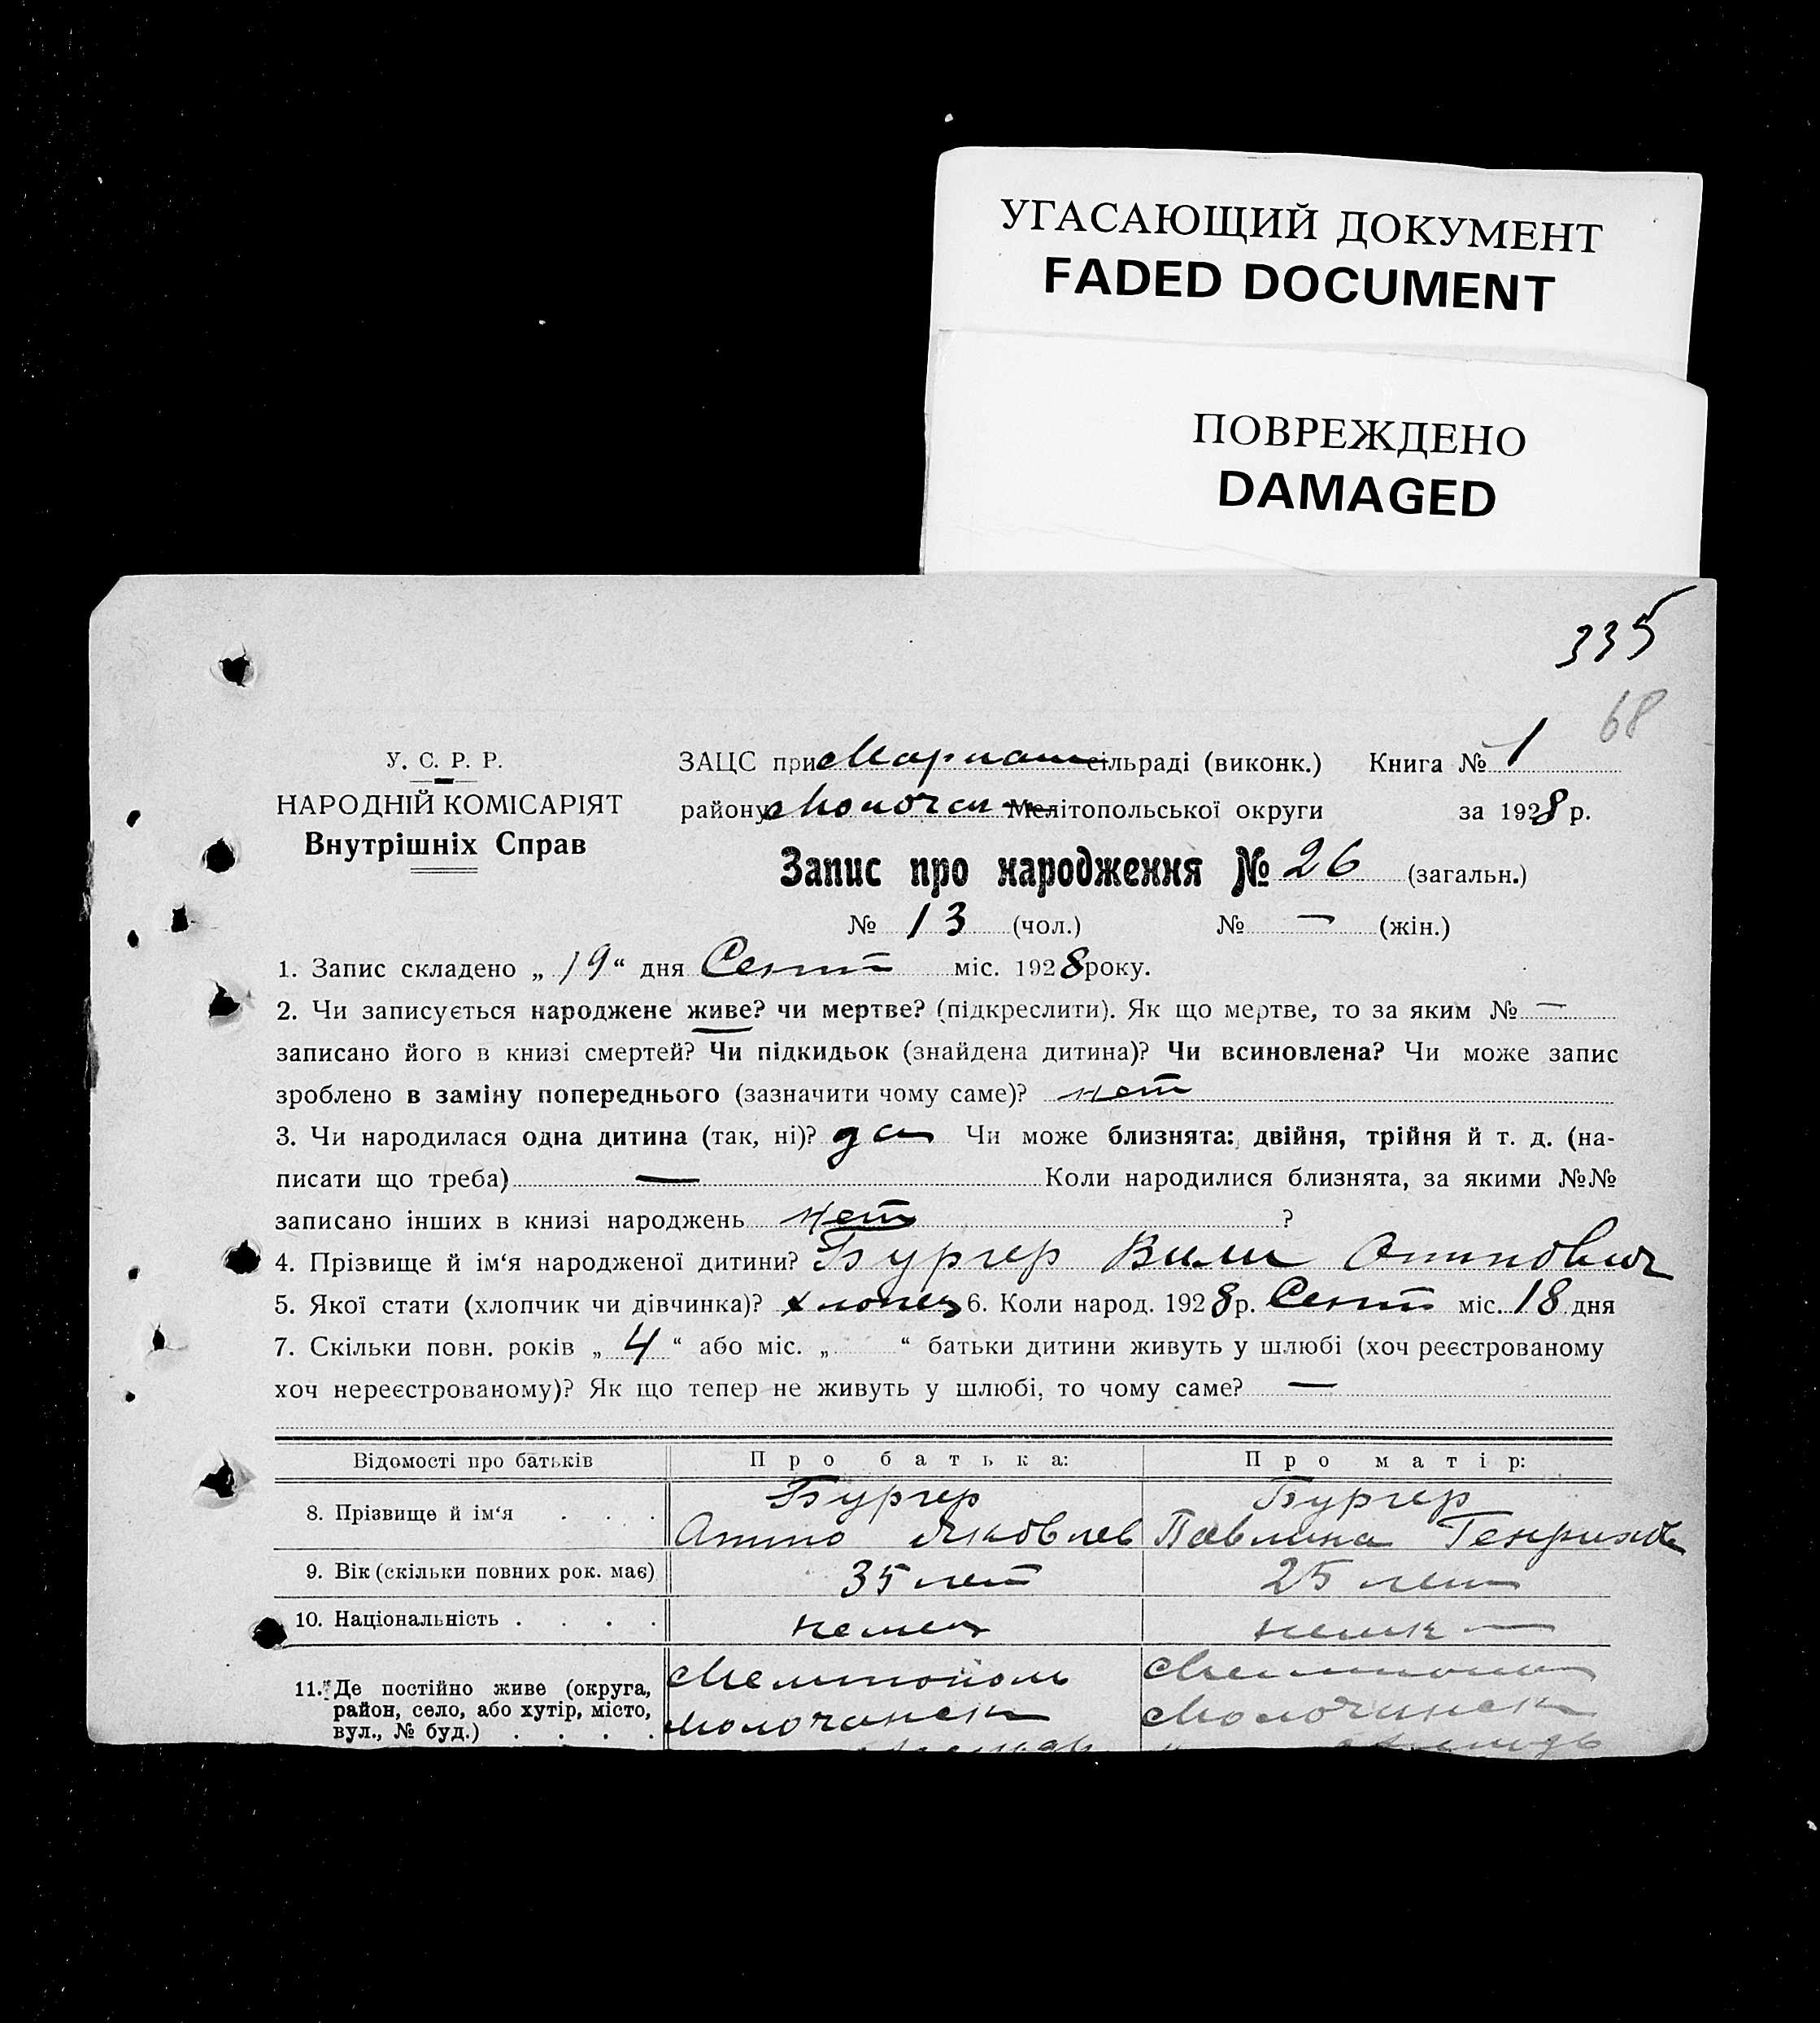 УГАСАЮЩИЙ ДОКУМЕНТ
FADED DOCUMENT
ПОВРЕЖДЕНО
DAMAGED
335
68
У. С. Р. Р.
НАРОДНІЙ КОМІСАРІЯТ
Внутрішніх Справ
ЗАЦС при сільраді (виконк.) Книга № 1
району Молочан Мелітопольської округи за 1928 р.
Запис про народження № 26 (загальн.)
№ 13 (чол.) № — (жін.)
1. Запис складено „ 19 “ дня Сент міс. 1928 року.
2. Чи записується народжене живе? чи мертве? (підкреслити). Як що мертве, то за яким № —
записано його в книзі смертей? Чи підкидьок (знайдена дитина)? Чи всиновлена? Чи може запис
зроблено в заміну попереднього (зазначити чому саме)? нет
3. Чи народилася одна дитина (так, ні)? да Чи може близнята: двійня, трійня й т. д. (на-
писати що треба) — Коли народилися близнята, за якими №№
записано інших в книзі народжень нет ?
4. Прізвище й ім‘я народженої дитини? Бургер Вили Оттович
5. Якої стати (хлопчик чи дівчинка)? хлопец 6. Коли народ. 1928 р. Сент міс. 18 дня
7. Скільки повн. років „ 4 “ або міс. „ “ батьки дитини живуть у шлюбі (хоч реєстрованому
хоч нереєстрованому)? Як що тепер не живуть у шлюбі, то чому саме? —
Відомості про батьків Про батька: Про матір:
8. Прізвище й ім‘я . . . Бургер Отто Яковлев Бургер Павлина Генрихов
9. Вік (скільки повних рок. має) 35 лет 25 лет
10. Національність . . . . немец немк
11. Де постійно живе (округа, район, село, або хутір, місто, вул., № буд.) . . . . Мелитополь Молочанск Мелитополь Молочанск